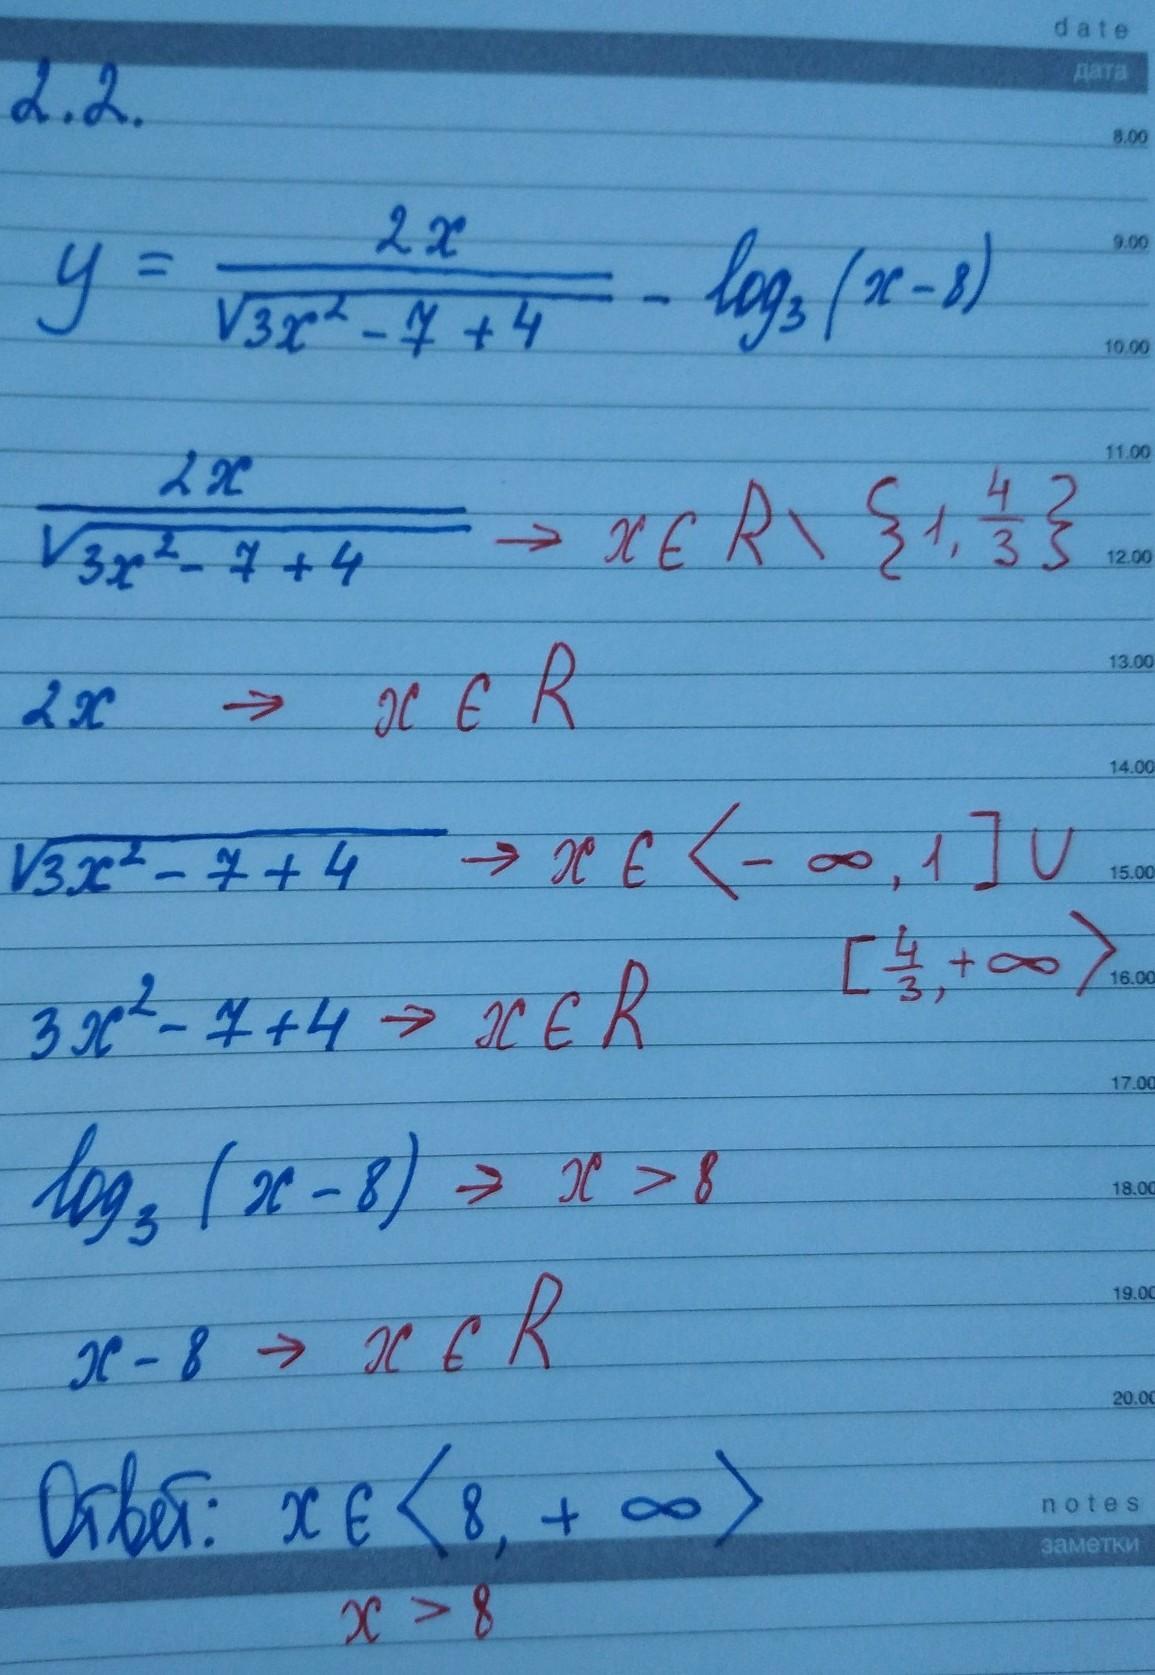 date
дата
2.2.
8.00
y = \frac{2x}{\sqrt{3x^2 - 7 + 4}} - log_3 (x - 8)
9.00
10.00
11.00
\frac{2x}{\sqrt{3x^2 - 7 + 4}} → x ∈ R \ {1, \frac{4}{3}}
12.00
13.00
2x → x ∈ R
14.00
\sqrt{3x^2 - 7 + 4} → x ∈ ⟨-∞, 1] ∪
15.00
[\frac{4}{3}, +∞⟩
16.00
3x^2 - 7 + 4 → x ∈ R
17.00
log_3 (x - 8) → x > 8
18.00
19.00
x - 8 → x ∈ R
20.00
Ответ: x ∈ ⟨8, +∞⟩
notes
заметки
x > 8